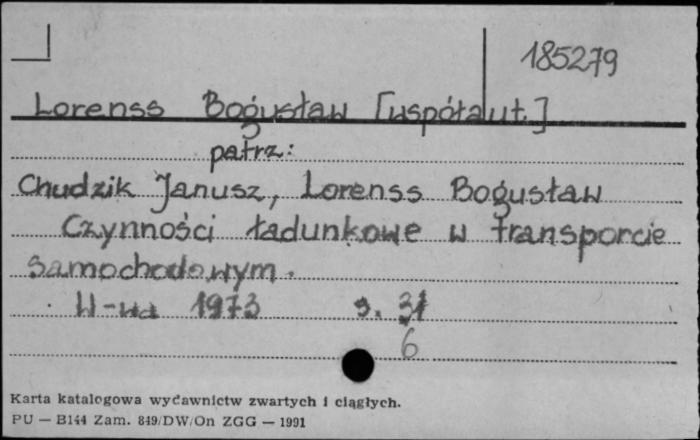 185279
Lorenss Bogusław [współaut.]
patrz:
Chudzik Janusz, Lorenss Bogusław
Czynności ładunkowe w transporcie
samochodowym.
W-wa 1973 s. 31
6
Karta katalogowa wydawnictw zwartych i ciągłych.
PU — B144 Zam. 849/DW/On ZGG — 1991